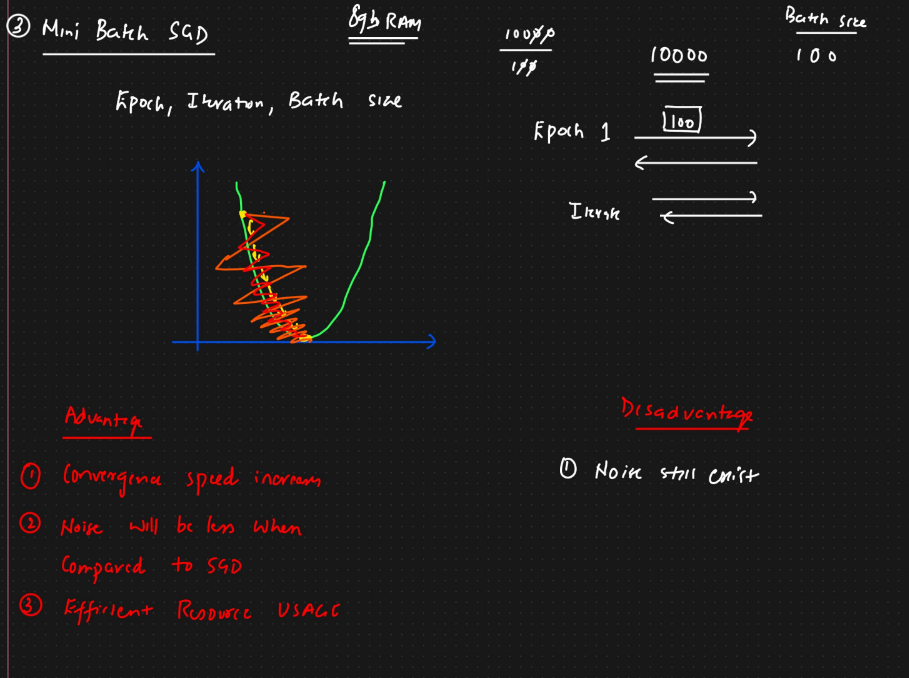 ③ Mini Batch SGD
8gb RAM
10000
100
10000
Batch size
100
Epoch, Iteration, Batch size
Epoch 1
100
Iterate
Advantage
① Convergence speed increases
② Noise will be less when
Compared to SGD
③ Efficient Resource USAGE
Disadvantage
① Noise still exist